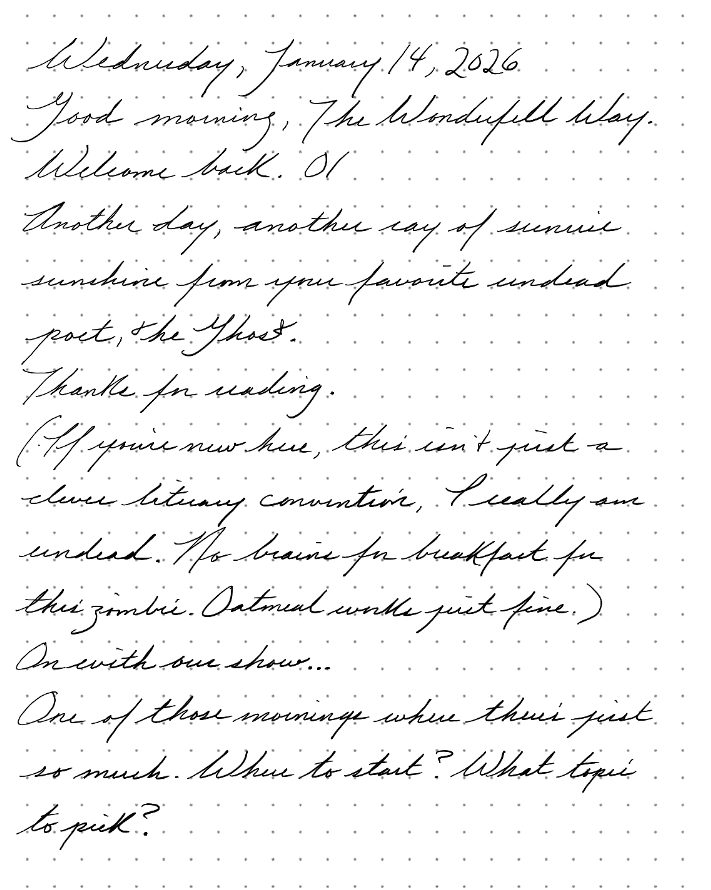 Wednesday, January 14, 2026
Good morning, The Wonderfell Way.
Welcome back. 01
Another day, another ray of sunrise
sunshine from your favorite undead
poet, the Ghost.
Thanks for reading.
(If you're new here, this isn't just a
clever literary convention, I really am
undead. No brains for breakfast for
this zombie. Oatmeal works just fine.)
On with our show...
One of those mornings where there's just
so much. Where to start? What topic
to pick?